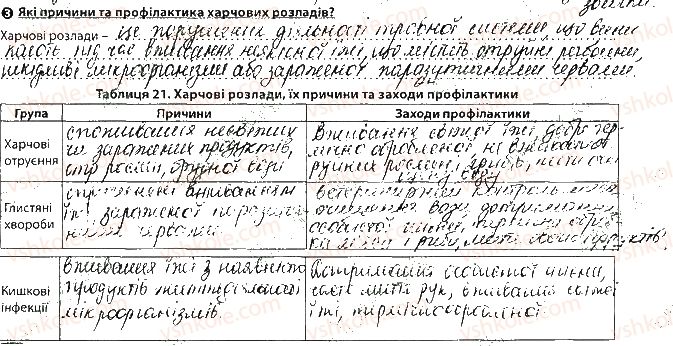 3 Які причини та профілактика харчових розладів?
Харчові розлади – це порушення діяльності травної системи, що виникають під час вживання неякісної їжі, що містить отруйні речовини,
шкідливі мікроорганізми або зараженої паразитичними червами.
Таблиця 21. Харчові розлади, їх причини та заходи профілактики
Група Причини Заходи профілактики
Харчові отруєння
споживання несвіжих
чи заражених продуктів,
отр рослин, брудної води
Вживання свіжої їжі, добре тер-
мічно обробленої, не вживати от-
руйних рослин, грибів, пити очи
Глистяні хвороби
спричинені вживанням
їжі, зараженої паразитич-
ними червами
ветеринарний контроль
очищення води, дотримання
особистої гігієни, термічна оброб
ка м'яса і риби, миття продуктів.
Кишкові інфекції
вживання їжі з наявністю
продуктів життєдіяльності
мікроорганізмів.
Дотримання особистої гігієни,
миття рук, вживання свіжої
їжі, термічно обробленої
vshkole.com